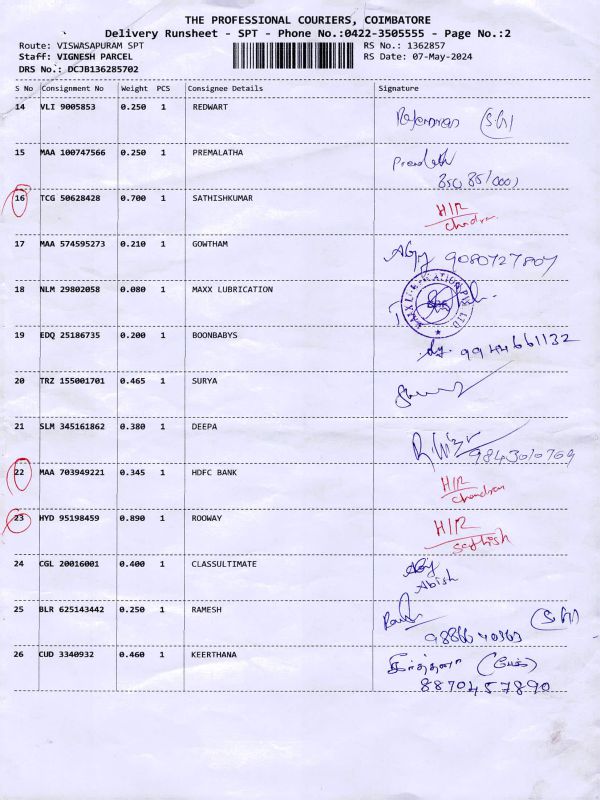 THE PROFESSIONAL COURIERS, COIMBATORE
Delivery Runsheet - SPT - Phone No.:0422-3505555 - Page No.:2
Route: VISWASAPURAM SPT
Staff: VIGNESH PARCEL
DRS No.: DCJB136285702
RS No.: 1362857
RS Date: 07-May-2024
S No Consignment No Weight PCS Consignee Details Signature
14 VLI 9005853 0.250 1 REDWART
15 MAA 100747566 0.250 1 PREMALATHA
16 TCG 50628428 0.700 1 SATHISHKUMAR H/R
Chandran
17 MAA 574595273 0.210 1 GOWTHAM 9080727807
18 NLM 29802058 0.080 1 MAXX LUBRICATION
19 EDQ 25186735 0.200 1 BOONBABYS 9944661132
20 TRZ 155001701 0.465 1 SURYA
21 SLM 345161862 0.380 1 DEEPA 9843010769
22 MAA 703949221 0.345 1 HDFC BANK H/R
Chandran
23 HYD 95198459 0.890 1 ROOWAY H/R
Sathish
24 CGL 20016001 0.400 1 CLASSULTIMATE
Abish
25 BLR 625143442 0.250 1 RAMESH
26 CUD 3340932 0.460 1 KEERTHANA கீர்த்தனா
8870457890